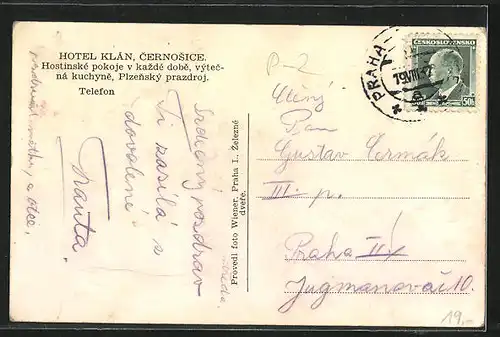 HOTEL KLÁN, ČERNOŠICE.
Hostinské pokoje v každé době, výteč-
ná kuchyně, Plzeňský prazdroj.
Telefon
Srdečný pozdrav
Ti zasílá s
dovolené
Provedl foto Wiener, Praha I., Železné
dveře.
ČESKOSLOVENSKO
50h
PRAHA
P-2
Ctěný
Pan
Gustav Čermák
III. p.
Praha II
Jugmanova č 10.
19,-